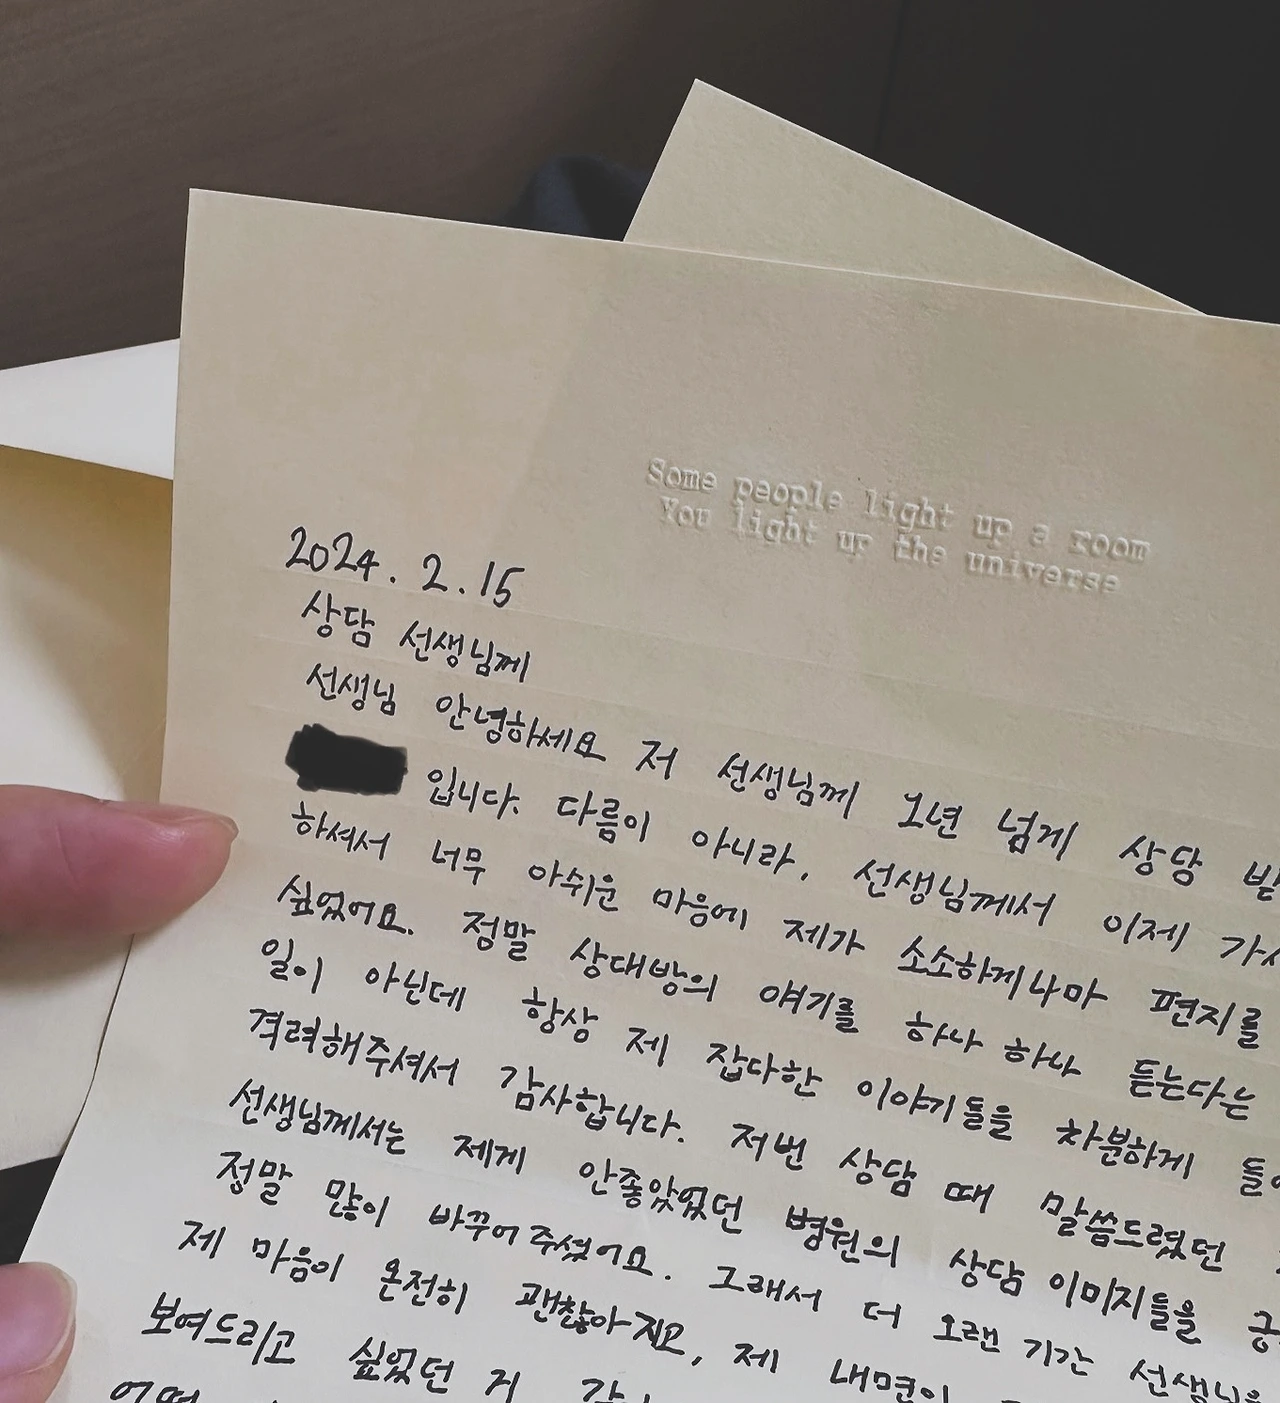 Some people light up a room
You light up the universe
2024. 2. 15
상담 선생님께
선생님 안녕하세요 저 선생님께 1년 넘게 상담
입니다. 다름이 아니라, 선생님께서 이제
하셔서 너무 아쉬운 마음에 제가 소소하게나마 편지를
싶었어요. 정말 상대방의 얘기를 하나 하나 듣는다는
일이 아닌데 항상 제 잡다한 이야기들을 차분하게
격려해주셔서 감사합니다. 저번 상담 때 말씀드렸던
선생님께서는 제게 안좋았었던 병원의 상담 이미지들을
정말 많이 바꾸어 주셨어요. 그래서 더 오랜 기간
제 마음이 온전히 괜찮아지고, 제 내면이
보여드리고 싶었던 거